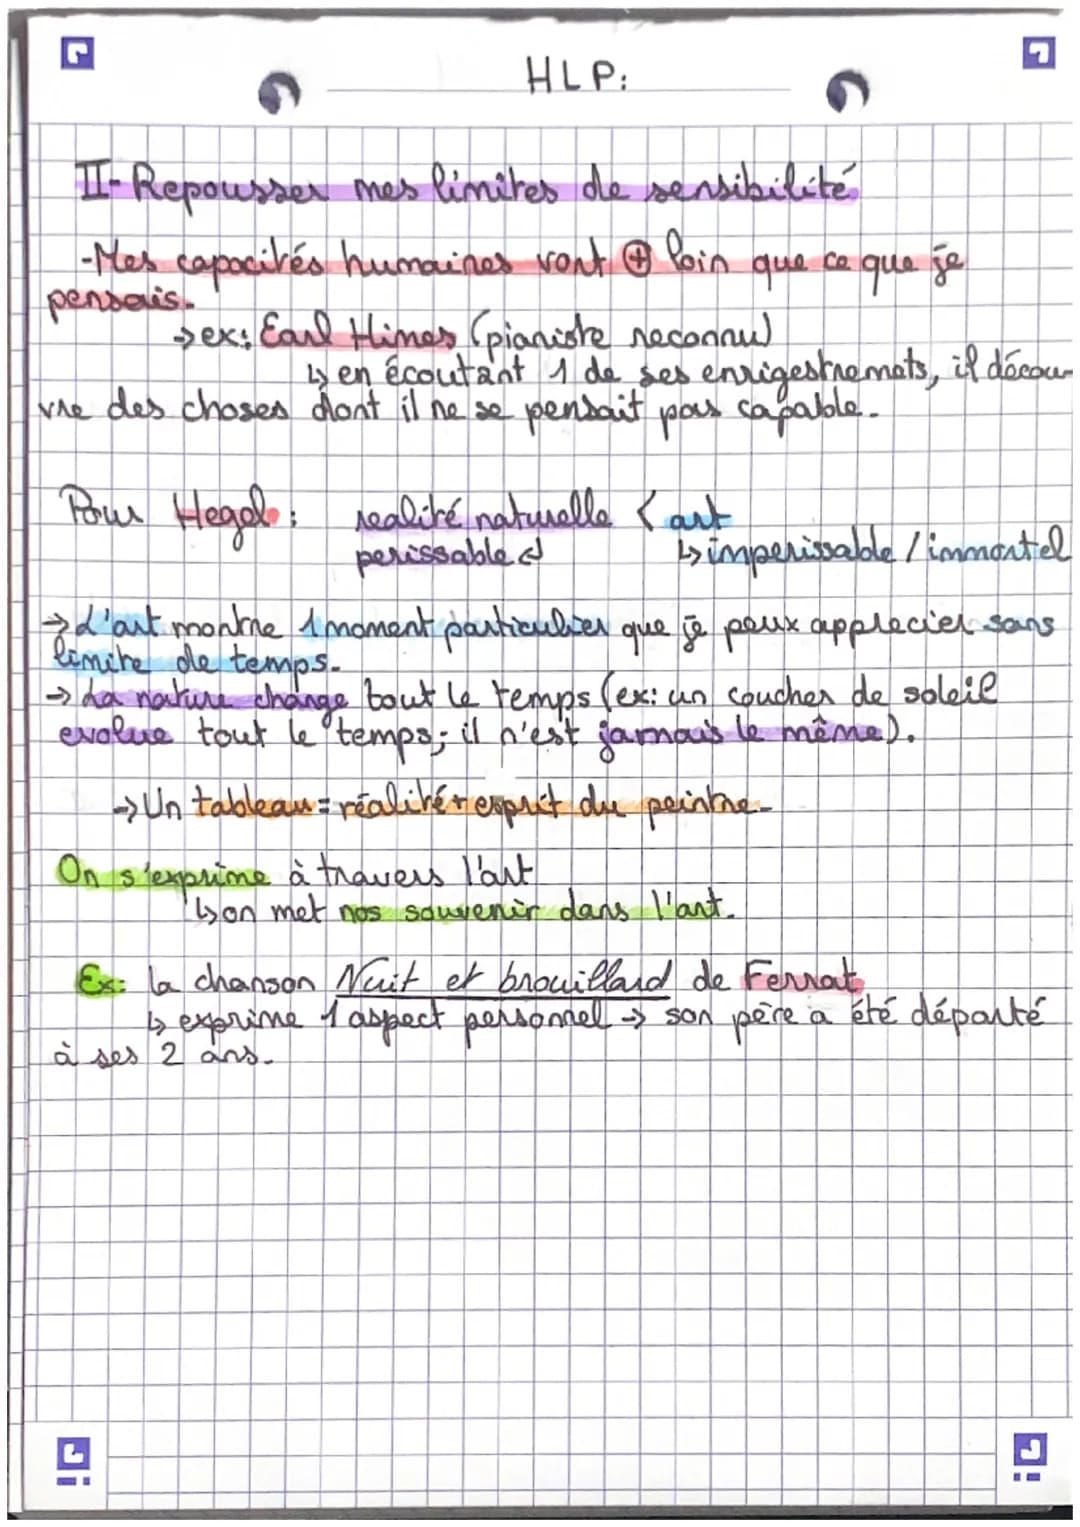 HLP:
II- Repousser mes limites de sensibilité
-Mes capacités humaines vont ⊕ loin que ce que je
pensais.
→ex: Earl Hines (pianiste reconnu)
↳ en écoutant 1 de ses enrigestremets, il décou-
vre des choses dont il ne se pensait pas capable.
Pour Hegel: realité naturelle < art
perissable ↲ ↳ imperissable / immortel
→ L'art montre 1 moment particulier que je peux apprecier sans
limite de temps.
→ La nature change tout le temps (ex: un coucher de soleil
evolue tout le temps; il n'est jamais le même).
→ Un tableau = réalité + esprit du peintre.
On s'exprime à travers l'art
↳ on met nos souvenir dans l'art.
Ex: la chanson Nuit et brouillard de Ferrat
↳ exprime 1 aspect personnel → son père a été départé
à ses 2 ans.